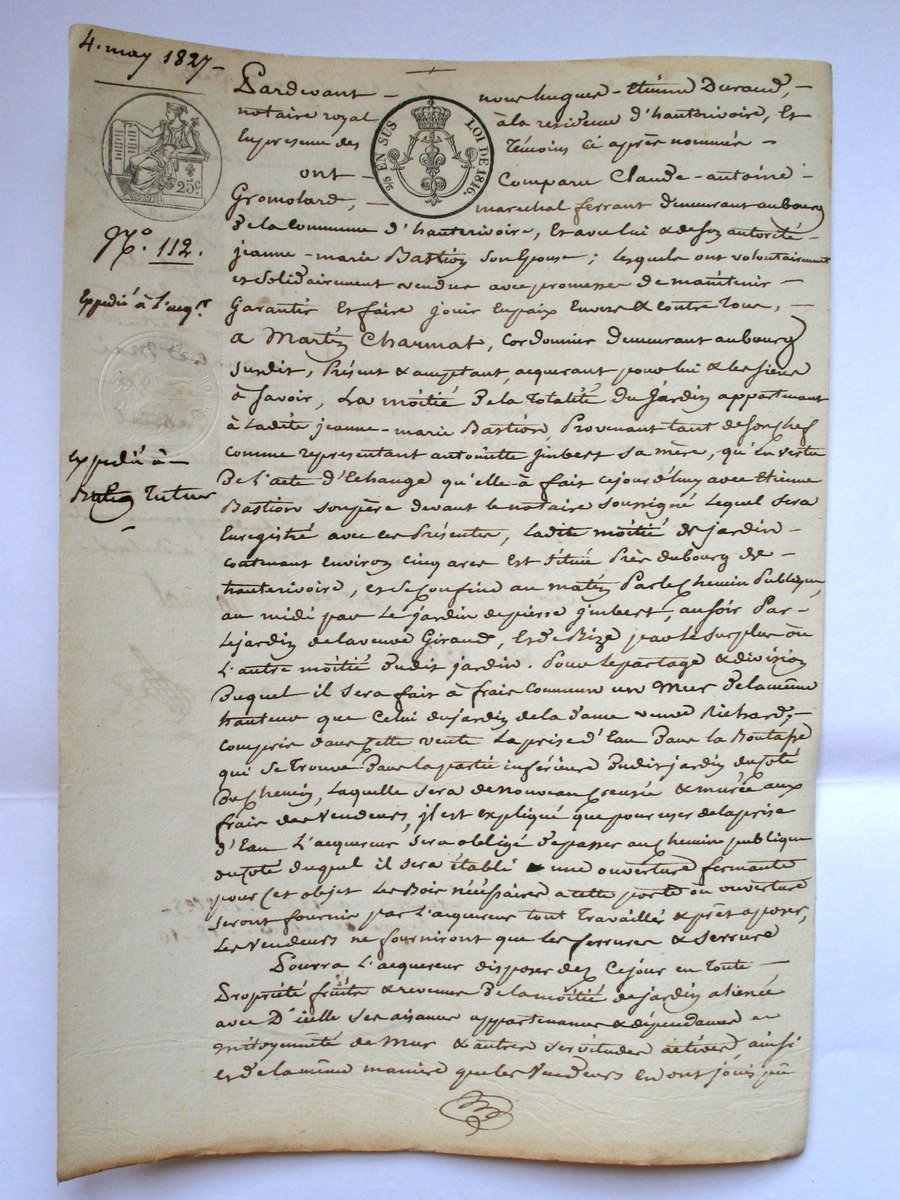 4. may 1827 -
Pardevant - nous hugues - Etienne Durand, -
notaire royal à la residence d'hauterivoire, Et
En presence des Témoins Ci après nommés -
ont - Comparu Claude - antoine -
Gromolard, - marechal ferrant demeurant au bourg
De la Commune d'hauterivoire, Et avec lui & de son autorité -
jeanne - marie Bastion son Epouse ; lesquels ont volontairement
et solidairement vendu avec promesse de maintenir -
Garantir Et faire jouir En paix Envers & Contre Tous, -
a Martin Charmat, Cordonnier demeurant au bourg
susdit, Présent & acceptant, acquerant pour lui & les siens
à Savoir, La moitié De la Totalité Du Jardin appartenant
à Ladite jeanne - marie Bastion, Provenant tant de son chef
comme representant antoinette jimbert sa mère, qu'En vertu
De l'acte d'Echange qu'elle à fait cejourd'huy avec Etienne
Bastion son père devant le notaire soussigné lequel sera
Enregistré avec ces Présentes, Ladite moitié de jardin -
contenant Environ cinq ares Est située Près du bourg de -
hauterivoire, et se Confine au matin Par le Chemin Publique,
au midi par Le jardin de pierre jimbert, au soir Par -
Le jardin de la veuve Giraud, Et de Bize par le surplus ou
L'autre moitié dudit jardin. Pour le partage & division
Duquel il sera fait à frais Communs un Mur De la même
hauteur que Celui du jardin de la Dame veuve Richard, -
Compris dans Cette vente La prise d'Eau Dans La Boutasse
qui se Trouve Dans la partie inférieure Dudit jardin du côté
Du Chemin, Laquelle sera de nouveau Creusée & murée aux
frais des Vendeurs, jl est expliqué que pour user de la prise
d'Eau L'acquereur sera obligé de passer au Chemin publique
du coté duquel il sera établi une ouverture fermante
pour Cet objet Les Bois nécéssaires a cette porte ou ouverture
seront fournis par L'acquereur tout Travaillés & prêt a poser,
Les vendeurs ne fourniront que les ferrures & serrure
Pourra L'acquereur disposer dez Cejour en Toute -
Propriété fruits & revenus De la moitié de jardin alienée
avec D'icelle ses aisances appartenances & dépendances et
mitoyenneté de Mur & autres servitudes actives ainsi
et de la même maniere que les Vendeurs en ont joui pû
25c
25 EN SUS LOI DE 1816.
No. 112.
Expédié à l'acqr.
expédié à -